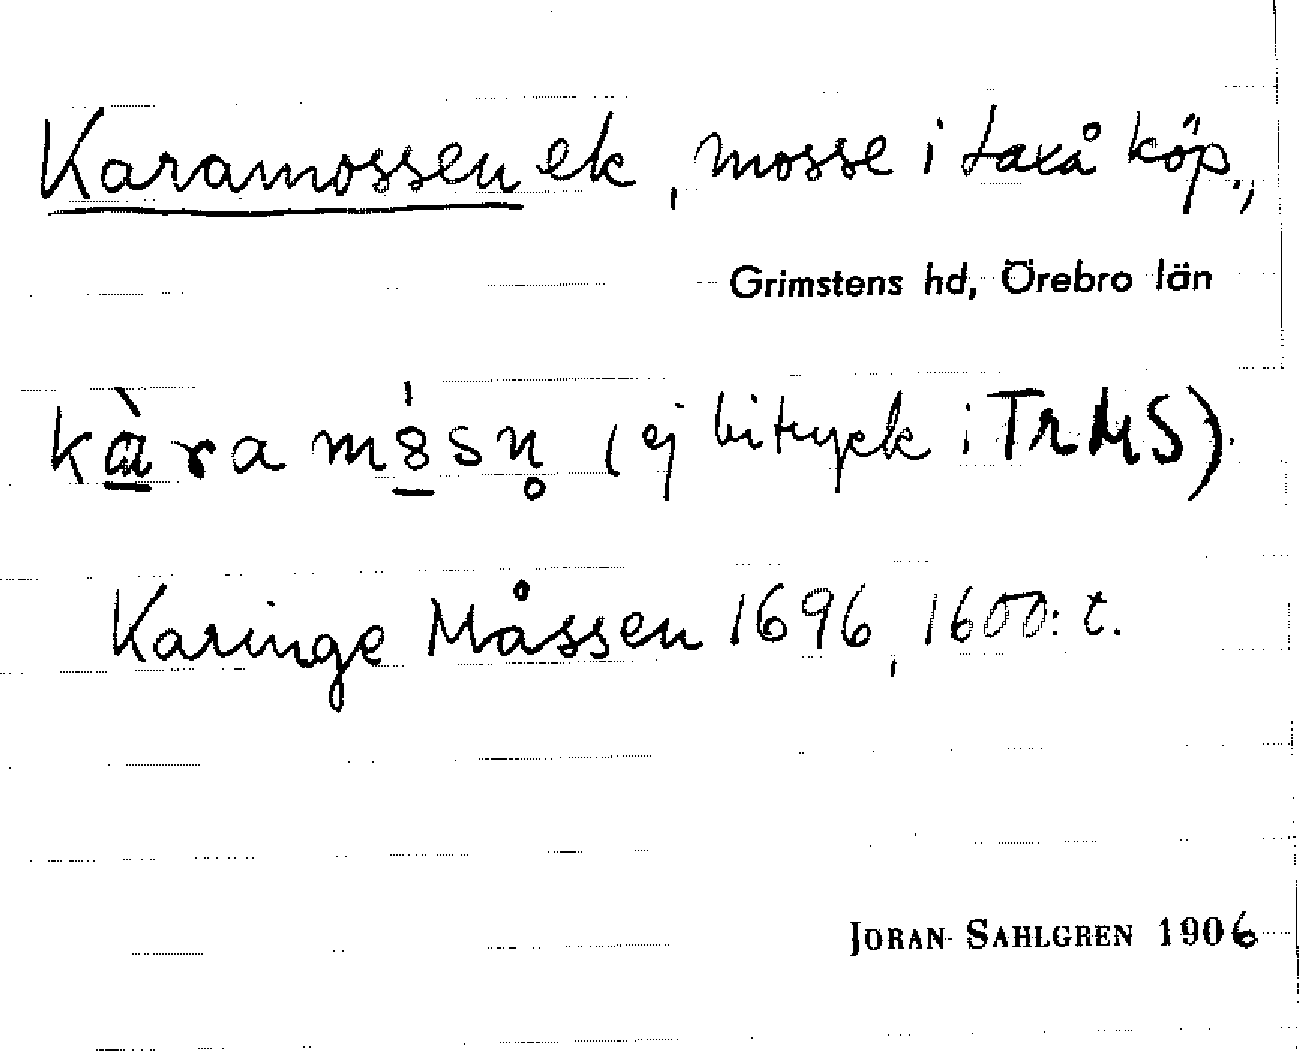 Karamossen ek, mosse i Laxå köp.,
Grimstens hd, Örebro län
kàra m8sn̥ (ej bitryck i TrMS).
Karinge Måssen 1696, 1600: t.
JORAN SAHLGREN 1906